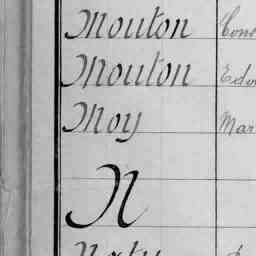 Mouton
Mouton
Moy Mar
N